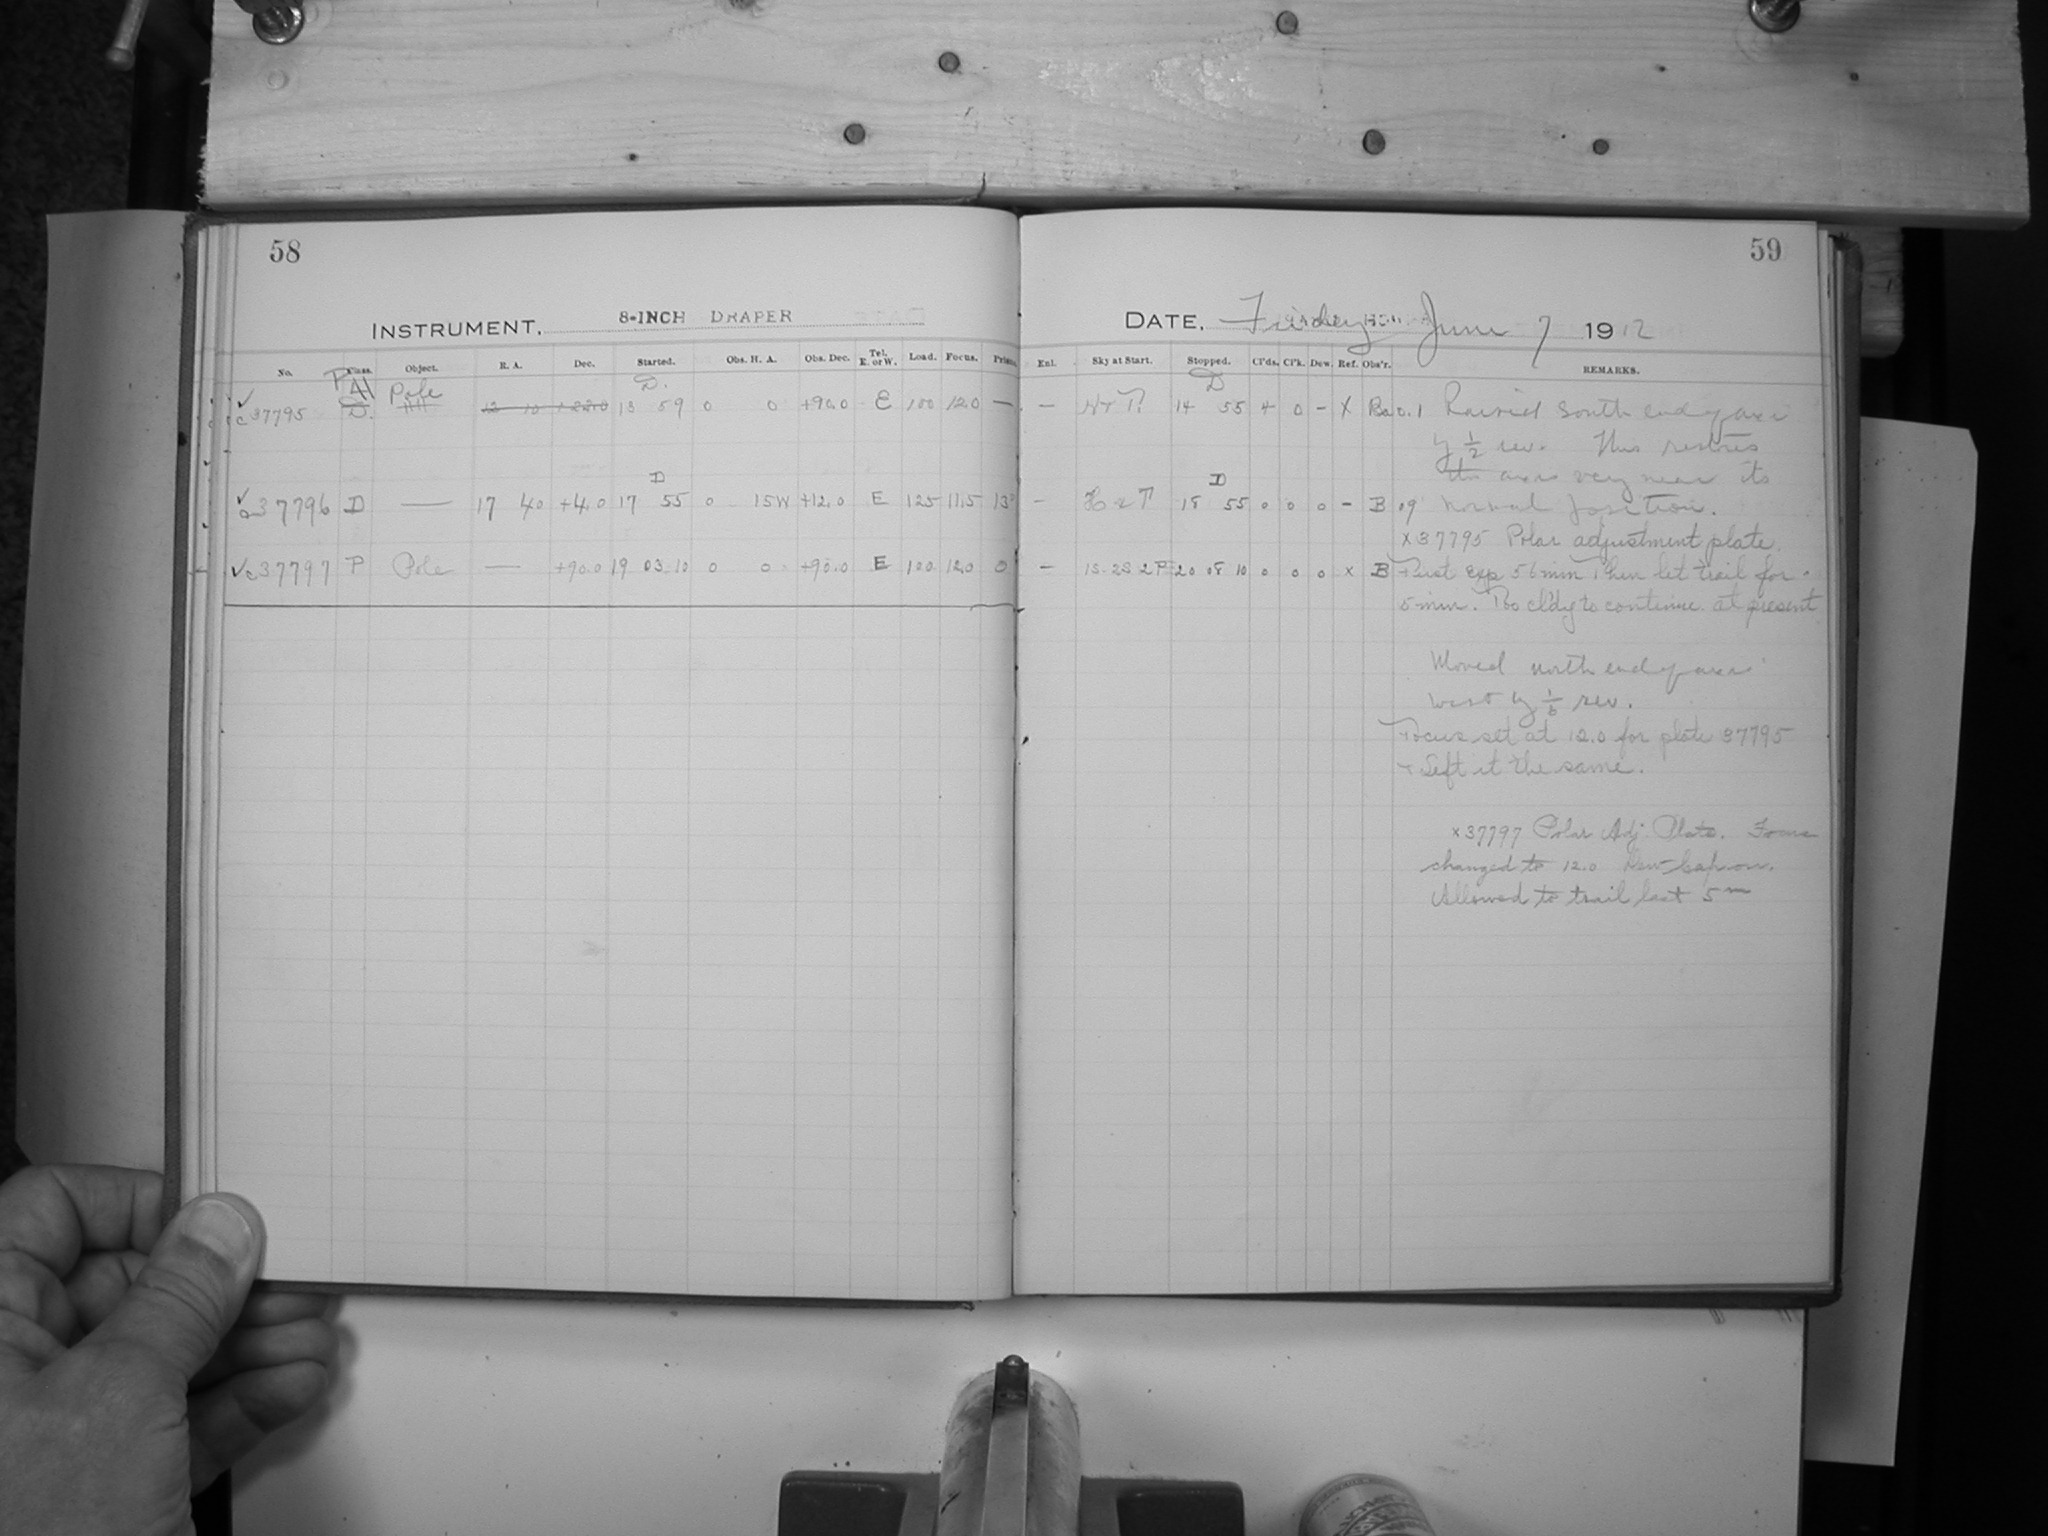 58
INSTRUMENT, 8-INCH DRAPER
No. Class. Object. R. A. Dec. Started. Obs. H. A. Obs. Dec. Tel. E. or W. Load. Focus. Prism.
c 37795 P Pole 13 59 0 0 +90.0 E 100 12.0 —
37796 D — 17 40 +4.0 17 55 0 15W +12.0 E 125 11.5
c 37797 P Pole — +90.0 19 03 10 0 0 +90.0 E 100 12.0 0
59
DATE, Friday June 7 1912
Enl. Sky at Start. Stopped. Cl'ds. Cl'k. Dew. Ref. Obs'r. REMARKS.
— H & T. D 14 55 4 0 – X Raised south end of axis
by 1/2 rev. This restores
the axis very near its
– H & T D 18 55 0 0 0 – B normal position.
x 37795 Polar adjustment plate.
– 20 08 10 0 0 0 x B First exp 56 min Then let trail for
5 min. Too cl'dy to continue at present
Moved north end of axis
west by 1/6 rev.
Focus set at 12.0 for plate 37795
+ Left it the same.
x 37797 Polar Adj. Plate. Focus
changed to 12.0 Dew-cap on.
Allowed to trail last 5m